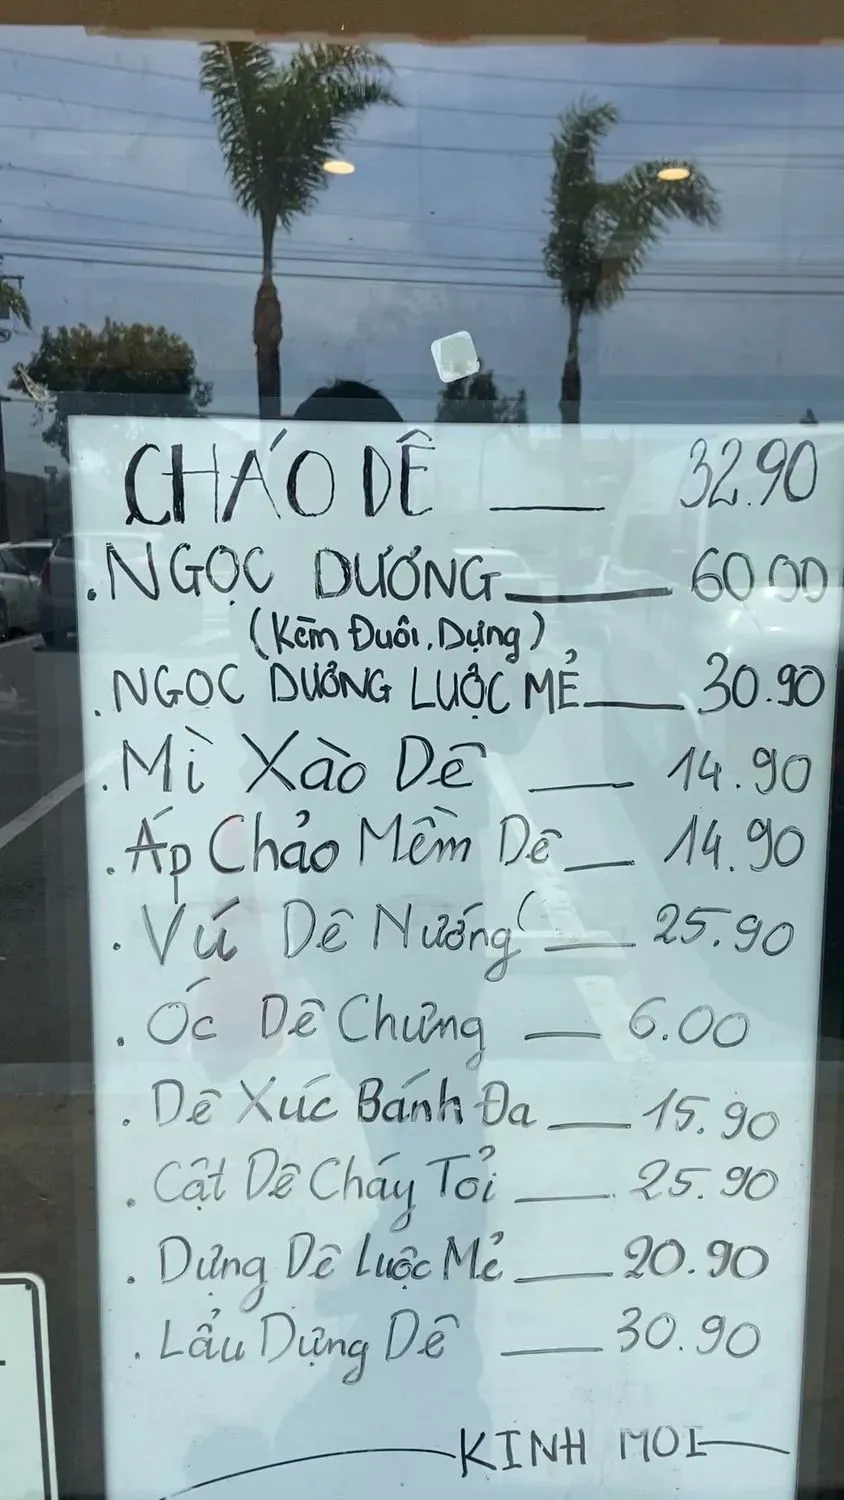 CHÁO DÊ — 32.90
.NGỌC DƯƠNG — 60.00
(Kèm Đuôi, Dựng)
.NGỌC DƯƠNG LUỘC MẺ — 30.90
.Mì Xào Dê — 14.90
.Áp Chảo Mềm Dê — 14.90
.Vú Dê Nướng — 25.90
.Óc Dê Chưng — 6.00
.Dê Xúc Bánh Đa — 15.90
.Cật Dê Cháy Tỏi — 25.90
.Dựng Dê Luộc Mẻ — 20.90
.Lẩu Dựng Dê — 30.90
KINH MOI